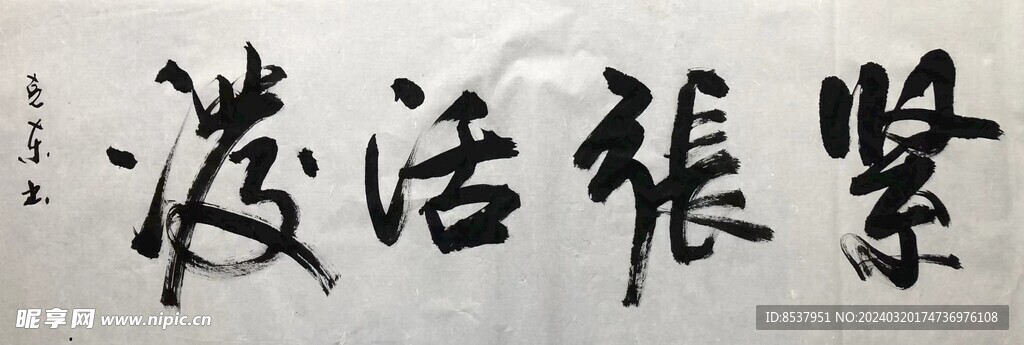 緊張活潑
克東书
昵享网 www.nipic.cn
ID:8537951 NO:20240320174736976108